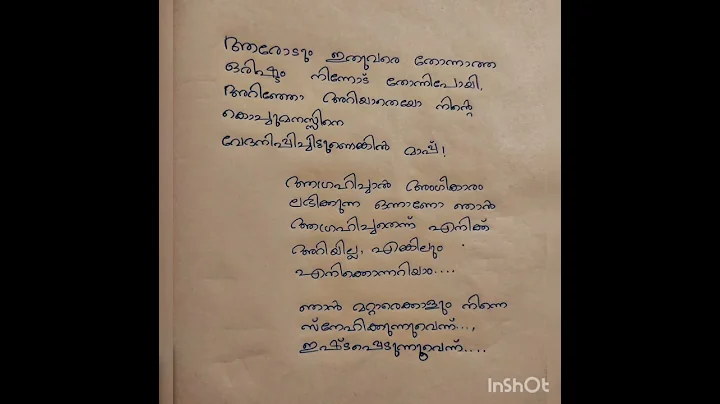 ആരോടും ഇതുവരെ തോന്നാത്ത
ഒരിഷ്ടം നിന്നോട് തോന്നിപോയി.
അറിഞ്ഞോ അറിയാതെയോ നിന്റെ
കൊച്ചുമനസ്സിനെ
വേദനിപ്പിച്ചിട്ടുണ്ടെങ്കിൽ മാപ്പ്!
ആഗ്രഹിച്ചാൽ അംഗികാരം
ലഭിക്കുന്ന ഒന്നാണോ ഞാൻ
ആഗ്രഹിച്ചതെന്ന് എനിക്ക്
അറിയില്ല, എങ്കിലും
എനിക്കൊന്നറിയാം....
ഞാൻ മറ്റാരെക്കാളും നിന്നെ
സ്നേഹിക്കുന്നുവെന്ന്...,
ഇഷ്ടപ്പെടുന്നുവെന്ന്....
InShOt